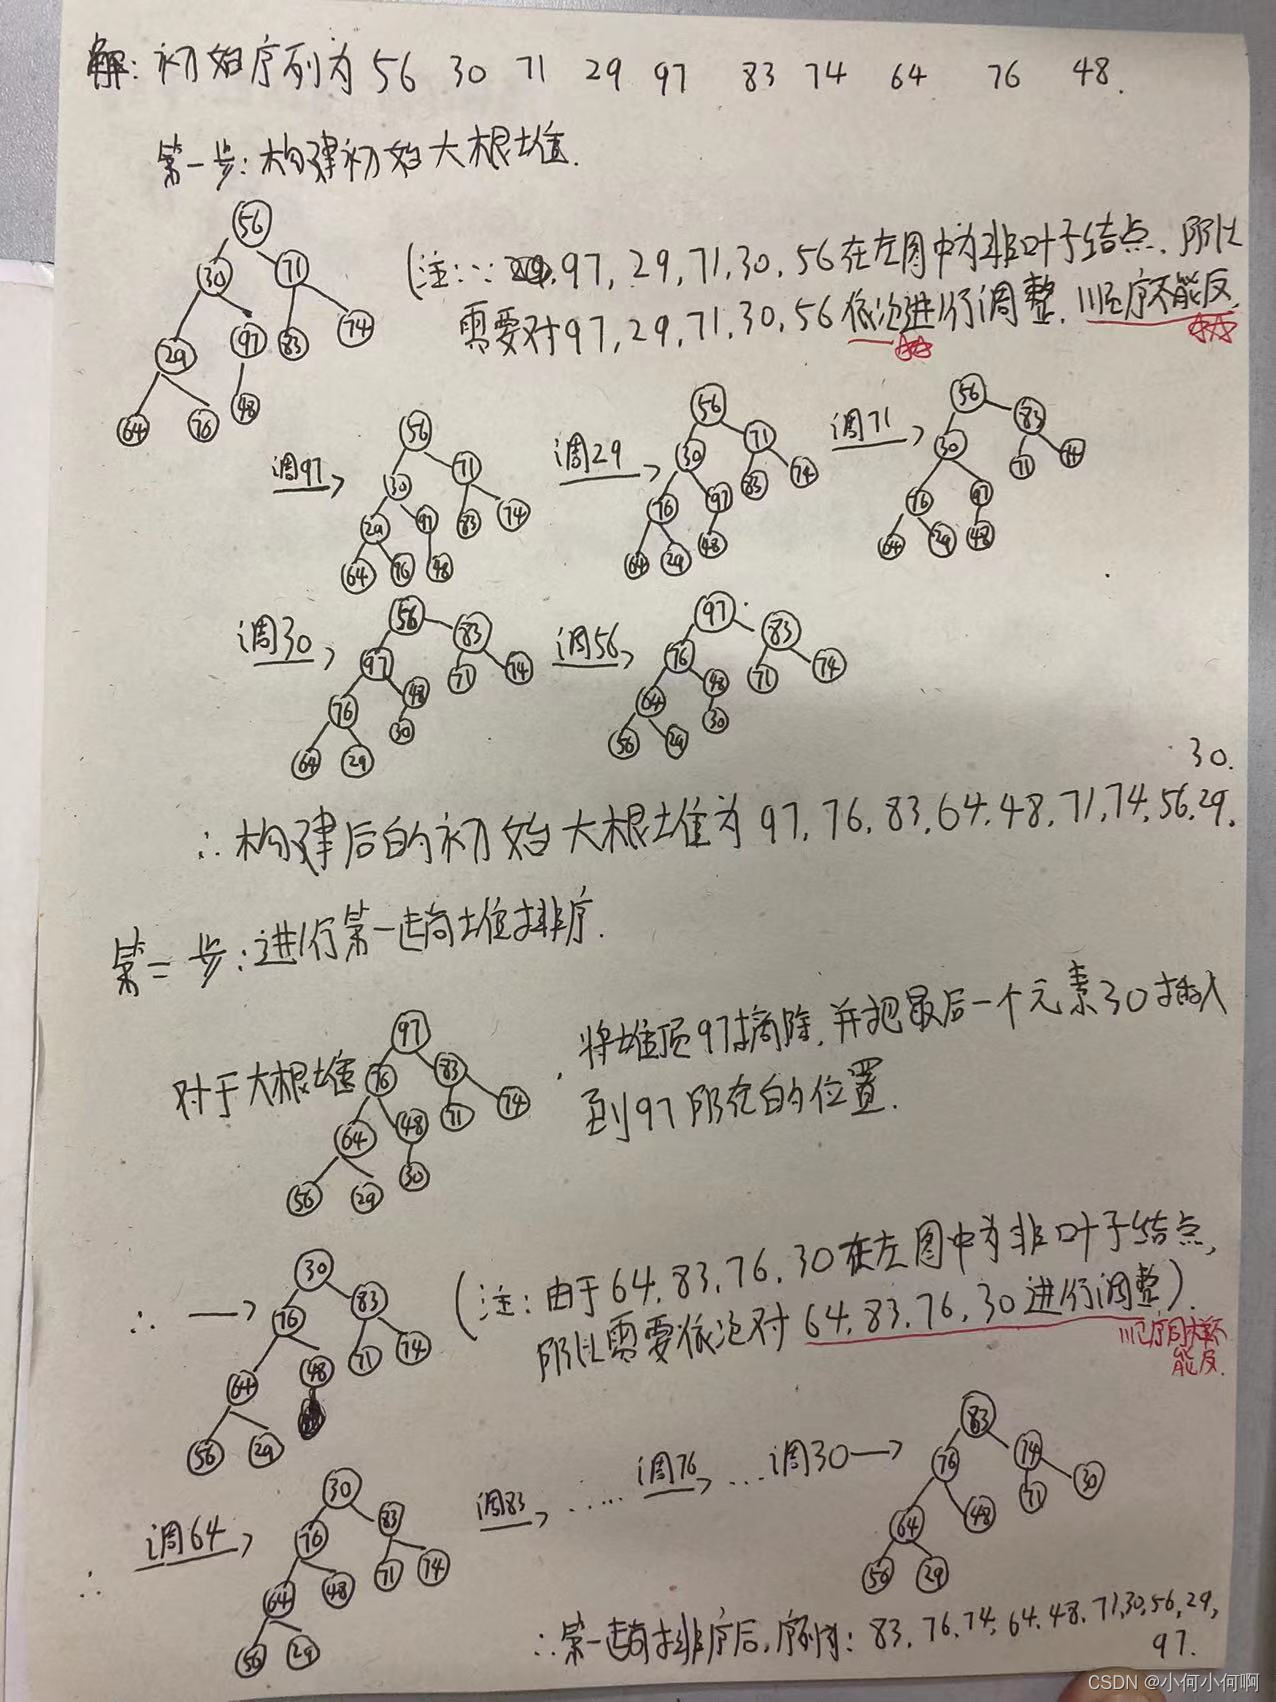 解：初始序列为 56 30 71 29 97 83 74 64 76 48.
第一步：构建初始大根堆.
56
30 71
29 97 83 74
64 76 48
(注：∵ 97, 29, 71, 30, 56在左图中为非叶子结点，所以
需要对97, 29, 71, 30, 56依次进行调整，顺序不能反.
调97
56
30 71
29 97 83 74
64 76 48
调29
56
30 71
76 97 83 74
64 29 48
调71
56
30 83
76 97 71 74
64 29 48
调30
56
97 83
76 48 71 74
64 29 30
调56
97
76 83
64 48 71 74
56 29 30
∴构建后的初始大根堆为97, 76, 83, 64, 48, 71, 74, 56, 29,
30.
第二步：进行第一趟堆排序.
对于大根堆
97
76 83
64 48 71 74
56 29 30
，将堆顶97摘除，并把最后一个元素30插入
到97所在的位置.
∴
30
76 83
64 48 71 74
56 29
(注：由于64, 83, 76, 30在左图中为非叶子结点,
所以需要依次对64, 83, 76, 30进行调整).
顺序同样不
能反.
∴
调64
30
76 83
64 48 71 74
56 29
调83 …… 调76 … 调30
83
76 74
64 48 71 30
56 29
∴第一趟排序后，序列为：83, 76, 74, 64, 48, 71, 30, 56, 29,
97.
CSDN @小何小何啊